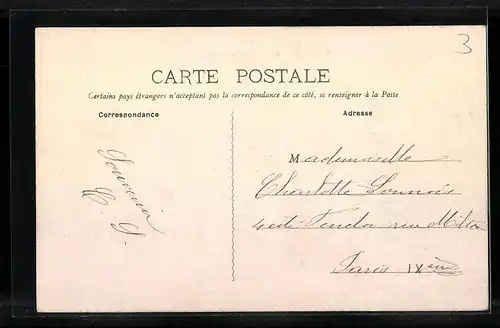 3
CARTE POSTALE
Certains pays étrangers n'acceptant pas la correspondance de ce côté, se renseigner à la Poste
Correspondance
Adresse
Souvenir
C. S.
Mademoiselle
Charlotte
rue
Paris IXème